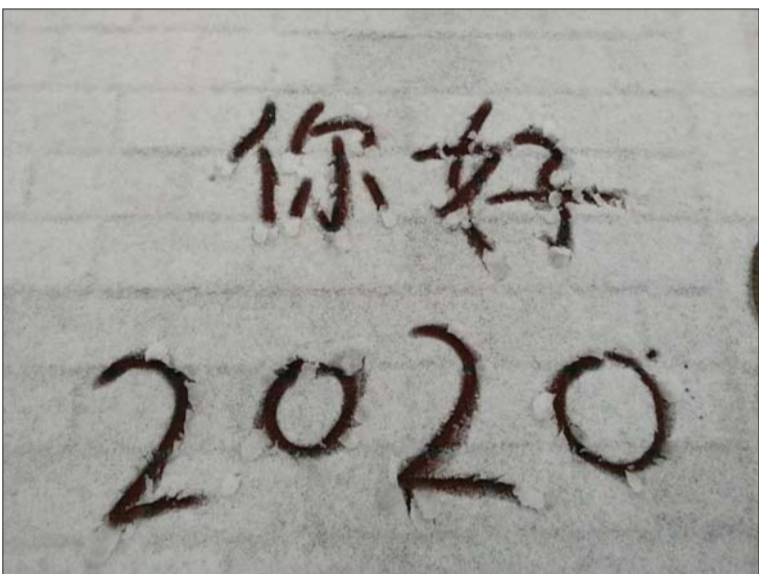 你好
2020